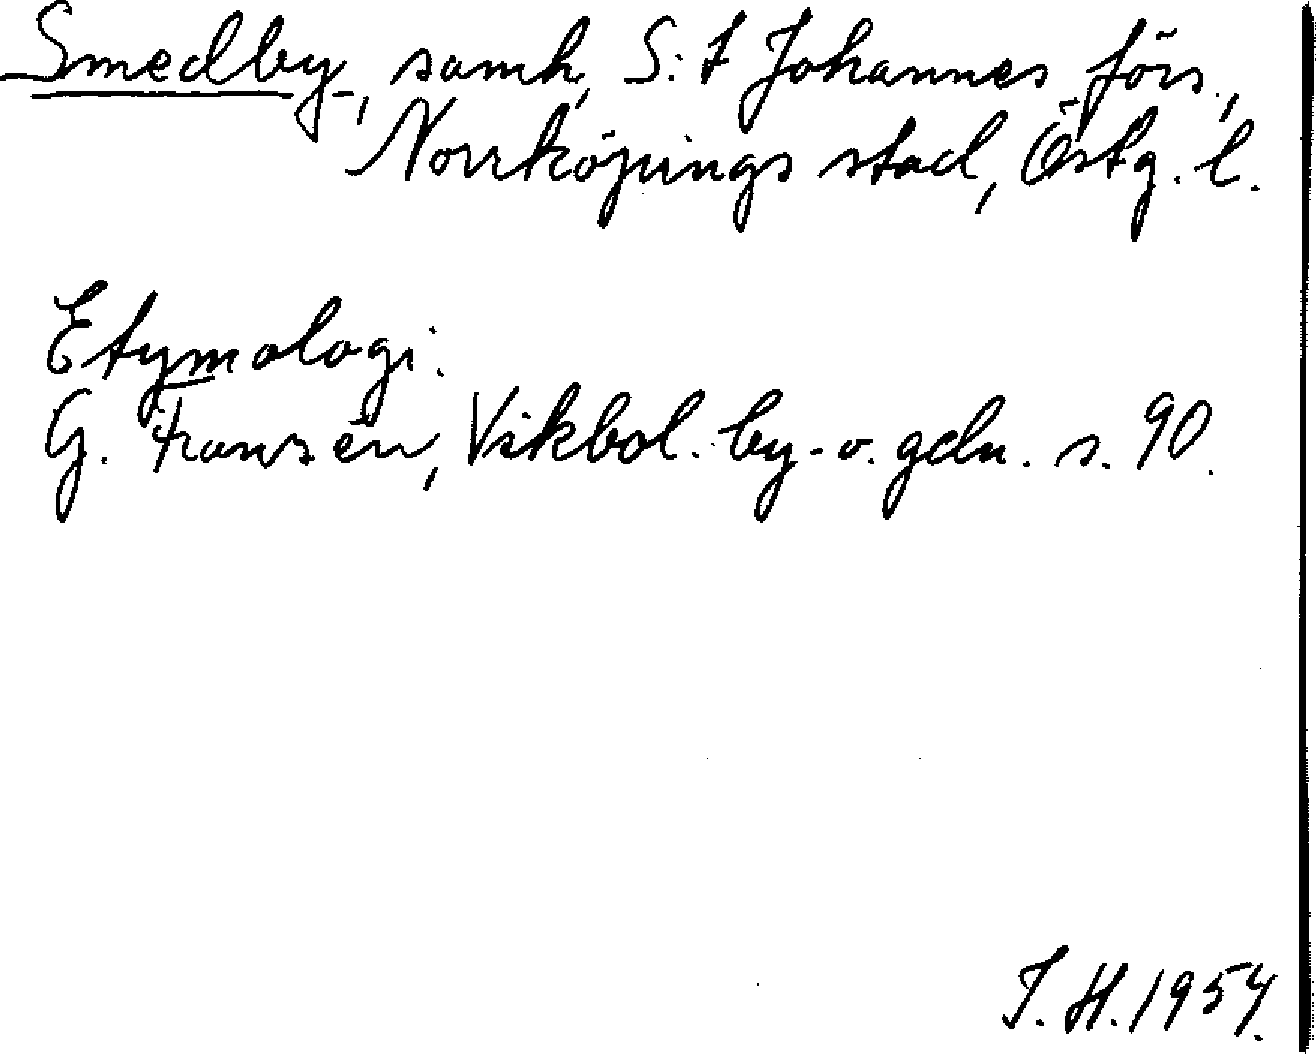 Smedby, samh., S:t Johannes förs.,
Norrköpings stad, Östg. l.
Etymologi.
G. Franzén, Vikbol. by- o. gdn. s. 90.
I. H. 1954.